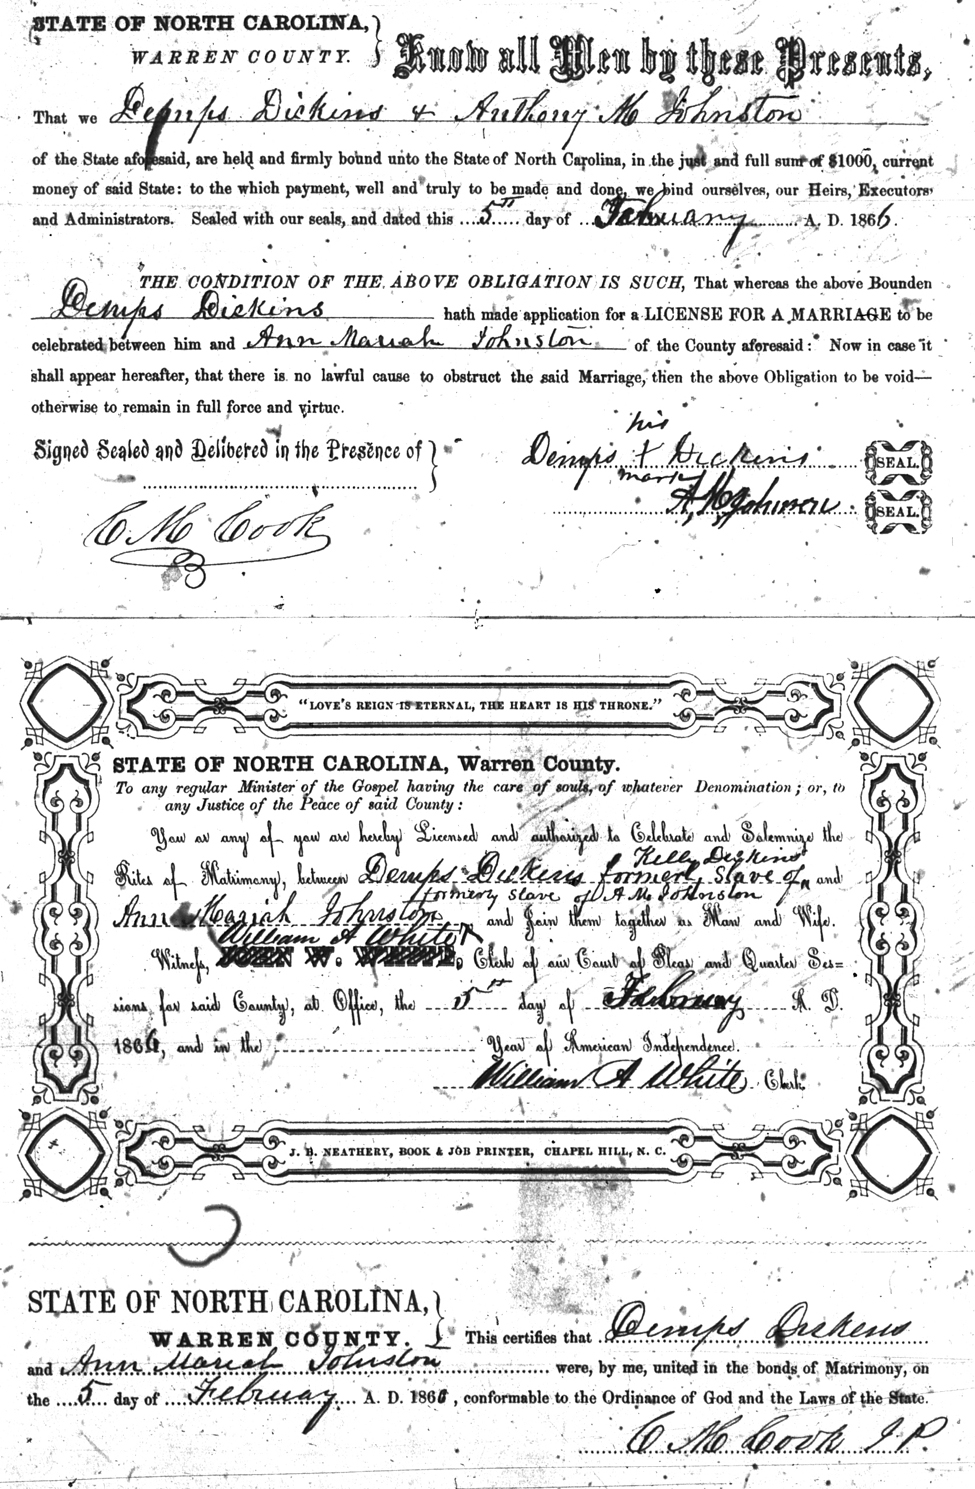 STATE OF NORTH CAROLINA,
WARREN COUNTY.
Know all Men by these Presents,
That we Demps Dickins & Anthony M Johnston
of the State aforesaid, are held and firmly bound unto the State of North Carolina, in the just and full sum of $1000, current
money of said State: to the which payment, well and truly to be made and done, we bind ourselves, our Heirs, Executors
and Administrators. Sealed with our seals, and dated this 5th day of February A. D. 1866.
THE CONDITION OF THE ABOVE OBLIGATION IS SUCH, That whereas the above Bounden
Demps Dickins hath made application for a LICENSE FOR A MARRIAGE to be
celebrated between him and Ann Mariah Johnston of the County aforesaid: Now in case it
shall appear hereafter, that there is no lawful cause to obstruct the said Marriage, then the above Obligation to be void—
otherwise to remain in full force and virtue.
Signed Sealed and Delivered in the Presence of
his
Demps X Dickins SEAL.
mark
A. M. Johnson SEAL.
C M Cook
"LOVE'S REIGN IS ETERNAL, THE HEART IS HIS THRONE."
STATE OF NORTH CAROLINA, Warren County.
To any regular Minister of the Gospel having the care of souls, of whatever Denomination; or, to
any Justice of the Peace of said County:
You or any of you are hereby Licensed and authorized to Celebrate and Solemnize the
Kelly Dickins
Rites of Matrimony, between Demps Dickins formerly Slave of and
formerly slave of A M Johnston
Ann Mariah Johnston and Join them together as Man and Wife.
William A White
Witness, JOHN W. WHITE, Clerk of our Court of Pleas and Quarter Ses-
sions for said County, at Office, the 5th day of February A. D.
1866, and in the Year of American Independence.
William A White Clerk.
J. B. NEATHERY, BOOK & JOB PRINTER, CHAPEL HILL, N. C.
STATE OF NORTH CAROLINA,
WARREN COUNTY.
This certifies that Demps Dickens
and Ann Mariah Johnston were, by me, united in the bonds of Matrimony, on
the 5 day of February A. D. 1866, conformable to the Ordinance of God and the Laws of the State.
C M Cook J P.